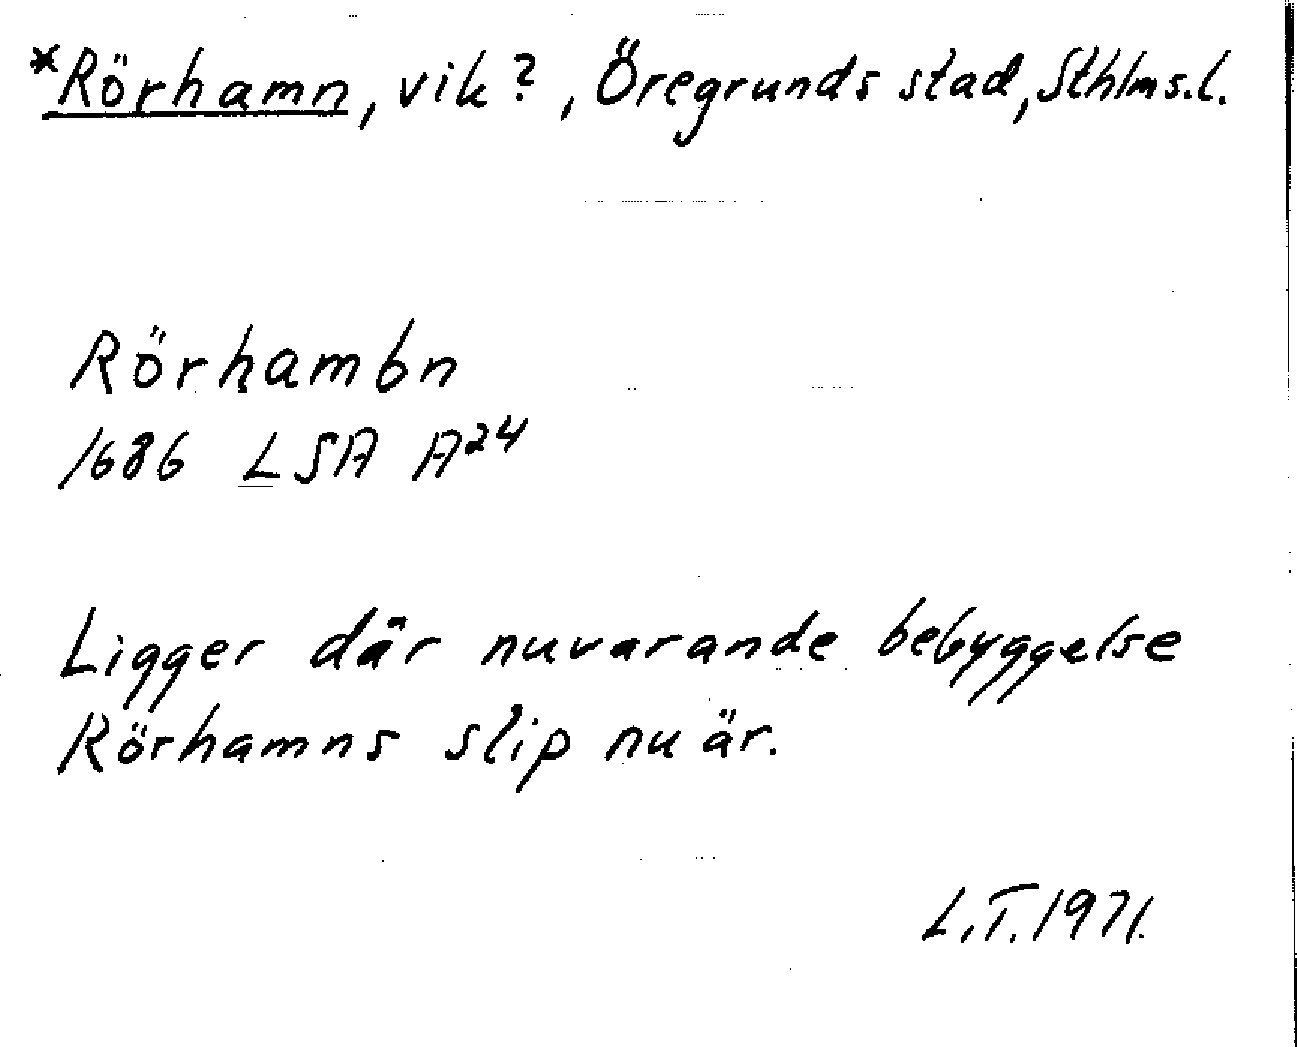 *Rörhamn, vik?, Öregrunds stad, Sthlms.l.
Rörhambn
1686 LSA A²⁴
Ligger där nuvarande bebyggelse
Rörhamns slip nu är.
L.T. 1971.